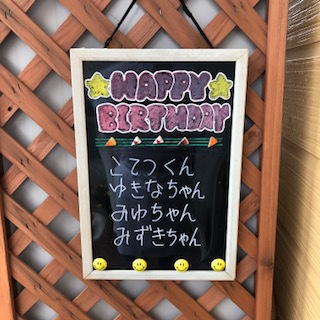 HAPPY
BIRTHDAY
こてつくん
ゆきなちゃん
みゆちゃん
みずきちゃん